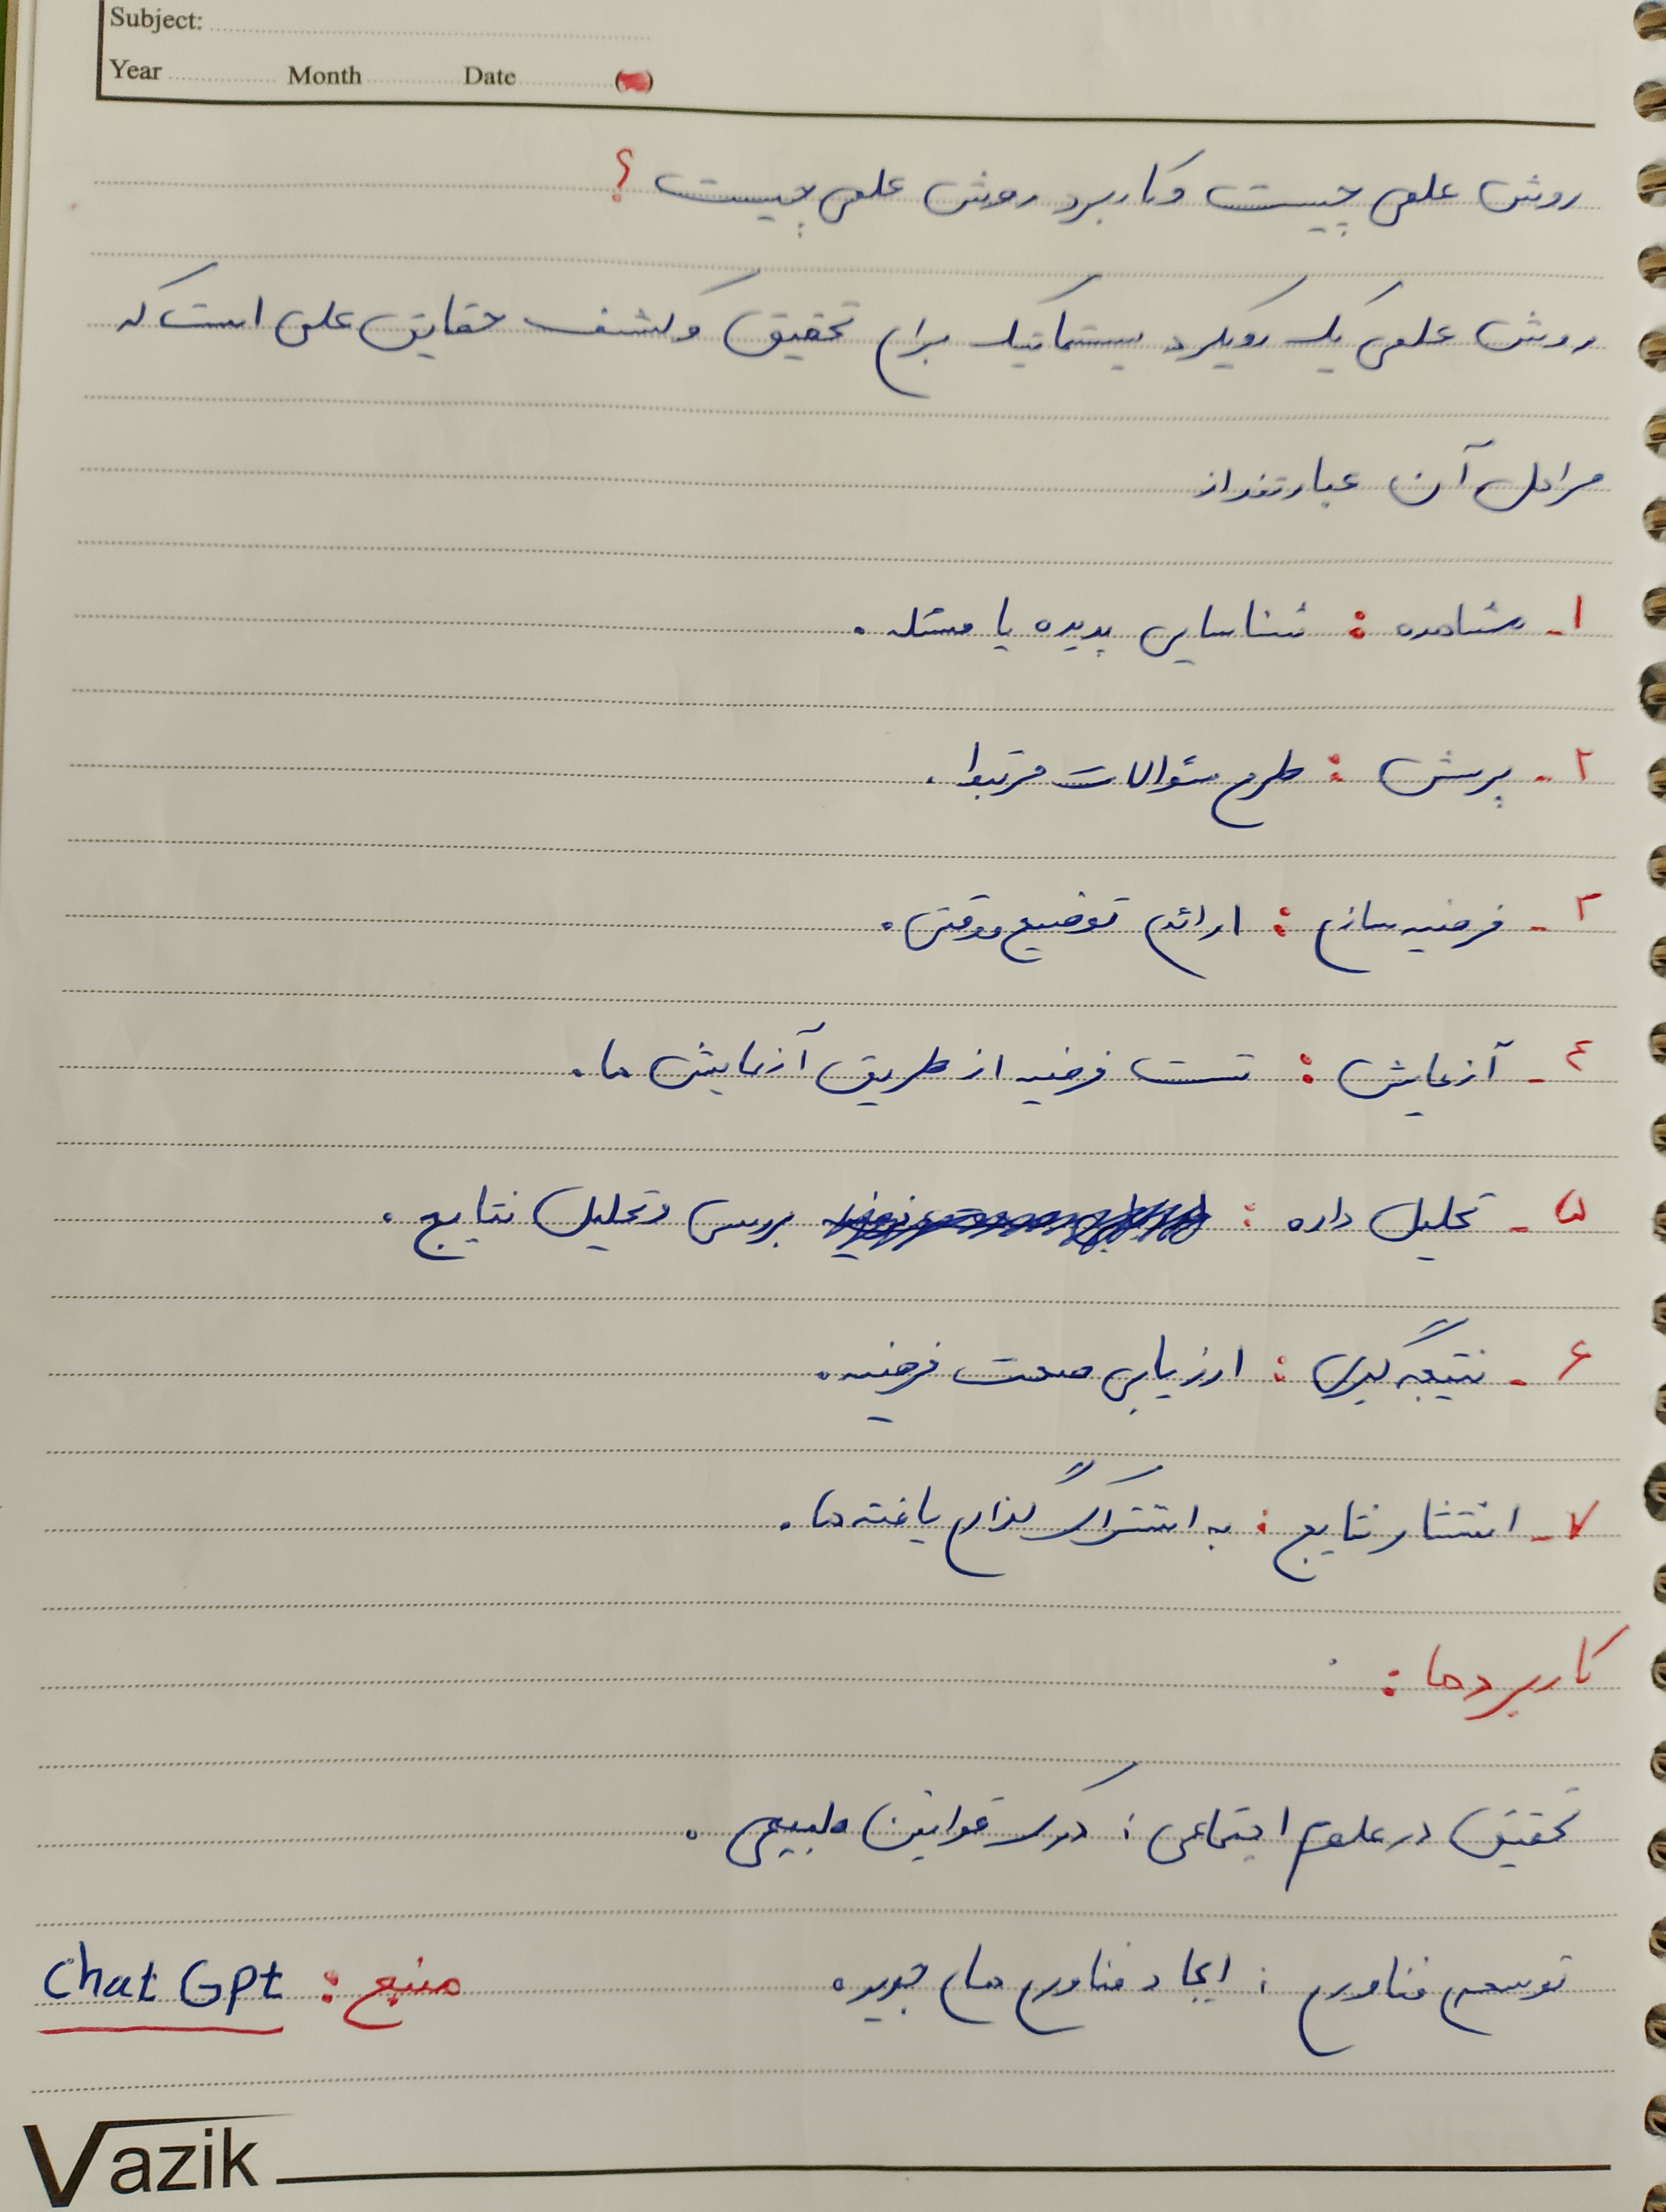 Subject:
Year Month Date ( )
روش علمی چیست و کاربرد روش علمی چیست ؟
روش علمی یک رویکرد سیستماتیک برای تحقیق و کشف حقایق علمی است که
مراحل آن عبارتنداز
۱- مشاهده : شناسایی پدیده یا مسئله .
۲- پرسش : طرح سئوالات مرتبط .
۳- فرضیه سازی : ارائه توضیح موقتی .
٤- آزمایش : تست فرضیه از طریق آزمایش ها .
۵- تحلیل داده : بررسی و تحلیل نتایج .
۶- نتیجه گیری : ارزیابی صحت فرضیه .
۷- انتشار نتایج : به اشتراک گذاری یافته ها .
کاربردها :
تحقیق در علوم اجتماعی : درک قوانین طبیعی .
توسعه فناوری : ایجاد فناوری های جدید
منبع : Chat GPt
Vazik